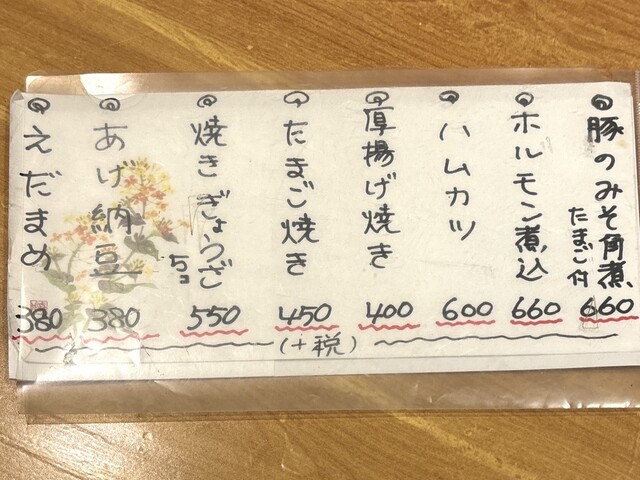 豚のみそ角煮
たまご付
660
ホルモン煮込
660
ハムカツ
600
厚揚げ焼き
400
たまご焼き
450
焼きぎょうざ
5コ
550
あげ納豆
380
えだまめ
380
(+税)